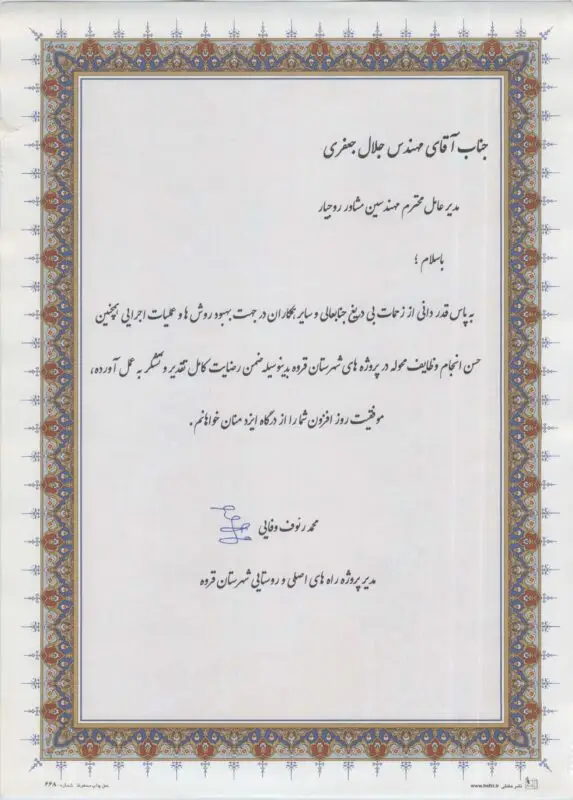 جناب آقای مهندس جلال جعفری
مدیر عامل محترم مهندسین مشاور روجیار
باسلام ؛
به پاس قدر دانی از زحمات بی دریغ جنابعالی و سایر همکاران در جهت بهبود روش ها و عملیات اجرایی همچنین
حسن انجام وظایف محوله در پروژه های شهرستان قروه بدینوسیله ضمن رضایت کامل تقدیر و تشکر به عمل آورده ،
موفقیت روز افزون شما را از درگاه ایزد منان خواهانم .
محمد رئوف وفایی
مدیر پروژه راه های اصلی و روستایی شهرستان قروه
www.hafez.ir
شماره: ۶۶۸